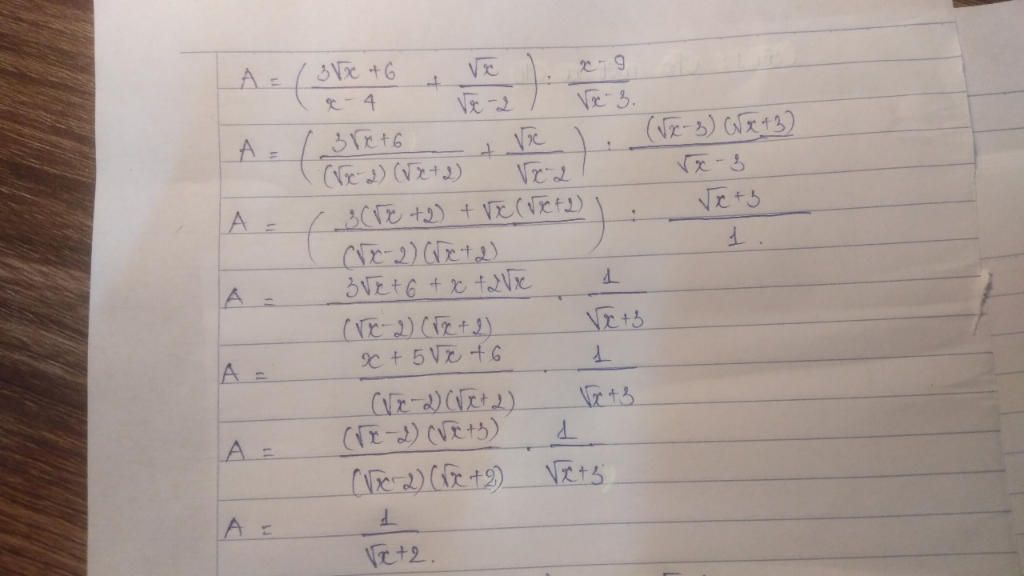 A = ( (3√x + 6)/(x - 4) + √x/(√x - 2) ) : (x - 9)/(√x - 3).
A = ( (3√x + 6)/((√x - 2)(√x + 2)) + √x/(√x - 2) ) : ((√x - 3)(√x + 3))/(√x - 3)
A = ( (3(√x + 2) + √x(√x + 2))/((√x - 2)(√x + 2)) ) : (√x + 3)/1.
A = (3√x + 6 + x + 2√x)/((√x - 2)(√x + 2)) . 1/(√x + 3)
A = (x + 5√x + 6)/((√x - 2)(√x + 2)) . 1/(√x + 3)
A = ((√x - 2)(√x + 3))/((√x - 2)(√x + 2)) . 1/(√x + 3)
A = 1/(√x + 2).